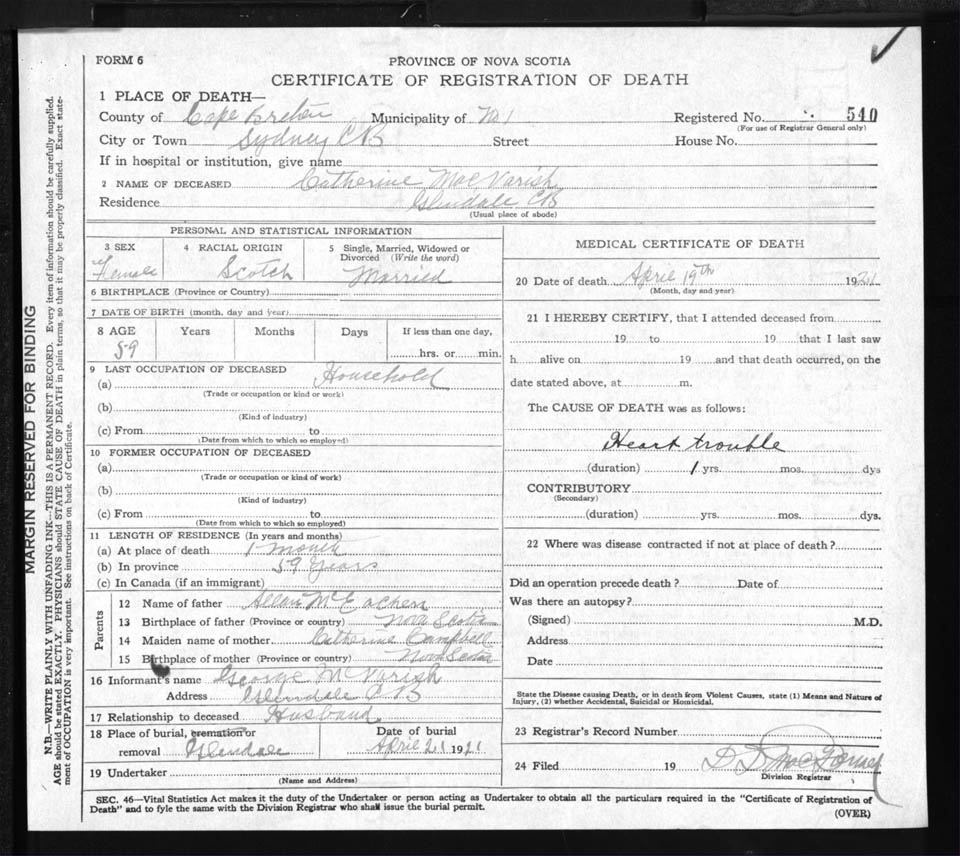 FORM 6
PROVINCE OF NOVA SCOTIA
CERTIFICATE OF REGISTRATION OF DEATH
1 PLACE OF DEATH—
County of Cape Breton Municipality of No 1 Registered No. 540
(For use of Registrar General only)
City or Town Sydney CB Street House No.
If in hospital or institution, give name
2 NAME OF DECEASED Catherine MacVarish
Residence Glendale CB
(Usual place of abode)
PERSONAL AND STATISTICAL INFORMATION
3 SEX 4 RACIAL ORIGIN 5 Single, Married, Widowed or Divorced (Write the word)
Female Scotch Married
6 BIRTHPLACE (Province or Country)
7 DATE OF BIRTH (month, day and year)
8 AGE Years Months Days If less than one day,
59 hrs. or min.
9 LAST OCCUPATION OF DECEASED
(a) Household
(Trade or occupation or kind or work)
(b)
(Kind of industry)
(c) From to
(Date from which to which so employed)
10 FORMER OCCUPATION OF DECEASED
(a)
(Trade or occupation or kind of work)
(b)
(Kind of industry)
(c) From to
(Date from which to which so employed)
11 LENGTH OF RESIDENCE (In years and months)
(a) At place of death 1 month
(b) In province 59 years
(c) In Canada (if an immigrant)
Parents
12 Name of father Allan McEachen
13 Birthplace of father (Province or country) Nova Scotia
14 Maiden name of mother Catherine Campbell
15 Birthplace of mother (Province or country) Nova Scotia
16 Informant's name George McVarish
Address Glendale CB
17 Relationship to deceased Husband
18 Place of burial, cremation or Date of burial
removal Glendale April 21 1921
19 Undertaker
(Name and Address)
MEDICAL CERTIFICATE OF DEATH
20 Date of death April 19th 1921
(Month, day and year)
21 I HEREBY CERTIFY, that I attended deceased from
19 to 19 that I last saw
h alive on 19 and that death occurred, on the
date stated above, at m.
The CAUSE OF DEATH was as follows:
Heart trouble
(duration) 1 yrs. mos. dys
CONTRIBUTORY
(Secondary)
(duration) yrs. mos. dys.
22 Where was disease contracted if not at place of death?
Did an operation precede death? Date of
Was there an autopsy?
(Signed) M.D.
Address
Date
State the Disease causing Death, or in death from Violent Causes, state (1) Means and Nature of
Injury, (2) whether Accidental, Suicidal or Homicidal.
23 Registrar's Record Number
24 Filed 19 D D
Division Registrar
SEC. 46—Vital Statistics Act makes it the duty of the Undertaker or person acting as Undertaker to obtain all the particulars required in the "Certificate of Registration of
Death" and to fyle the same with the Division Registrar who shall issue the burial permit.
(OVER)
MARGIN RESERVED FOR BINDING
N.B.—WRITE PLAINLY WITH UNFADING INK—THIS IS A PERMANENT RECORD. Every item of information should be carefully supplied.
AGE should be stated EXACTLY. PHYSICIANS should STATE CAUSE OF DEATH in plain terms, so that it may be properly classified. Exact state-
ment of OCCUPATION is very important. See instructions on back of Certificate.